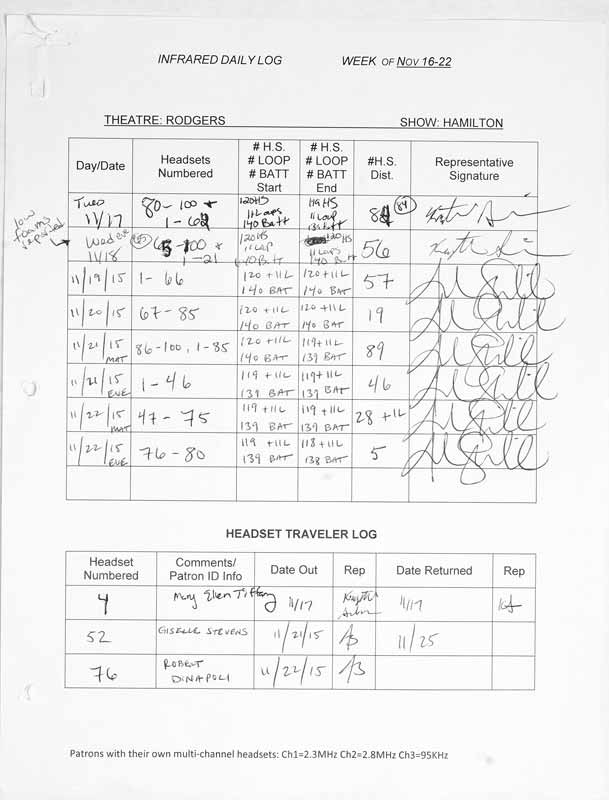 INFRARED DAILY LOG WEEK OF NOV 16-22
THEATRE: RODGERS SHOW: HAMILTON
Day/Date Headsets Numbered # H.S. # LOOP # BATT Start # H.S. # LOOP # BATT End #H.S. Dist. Representative Signature
low foams
Tues 11/17 80-100 + 1-62 120HS 11 Loops 140 Batt 119HS 11 Loop 84
Wed eve 11/18 65-100 + 1-21 120HS 11 Loop 140 Batt 120HS 11 Loops 140 Batt 56
11/19/15 1-66 120 +11L 140 BAT 120 +11L 140 BAT 57
11/20/15 67-85 120 +11L 140 BAT 120 +11L 140 BAT 19
11/21/15 MAT 86-100, 1-85 120 +11L 140 BAT 119 +11L 139 BAT 89
11/21/15 EVE 1-46 119 +11L 139 BAT 119 +11L 139 BAT 46
11/22/15 MAT 47-75 119 +11L 139 BAT 119 +11L 139 BAT 28 +1L
11/22/15 EVE 76-80 119 +11L 139 BAT 118 +11L 138 BAT 5
HEADSET TRAVELER LOG
Headset Numbered Comments/ Patron ID Info Date Out Rep Date Returned Rep
4 Mary Ellen Tiffany 11/17 11/17
52 GISELLE STEVENS 11/21/15 AB 11/25
76 ROBERT DINAPOLI 11/22/15 AB
Patrons with their own multi-channel headsets: Ch1=2.3MHz Ch2=2.8MHz Ch3=95KHz